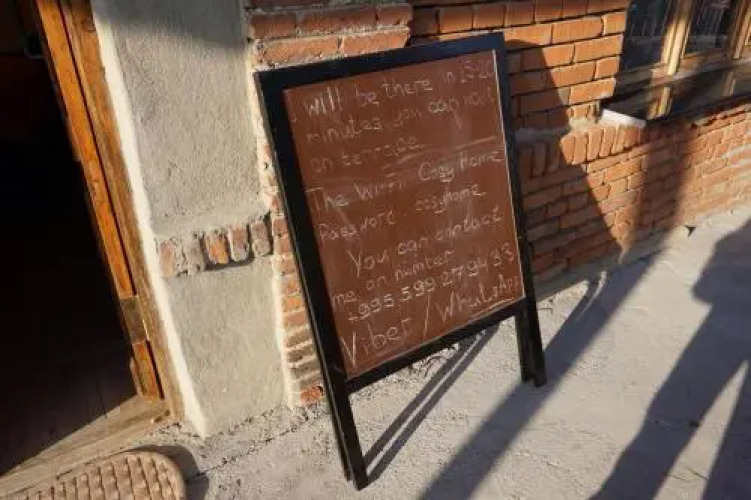 I will be there in 15-20
minutes you can wait
on terrace
The Wi-Fi Cosy Home
Password: cosyhome
You can contact
me on number
+995 599 27 94 33
Viber / WhatsApp